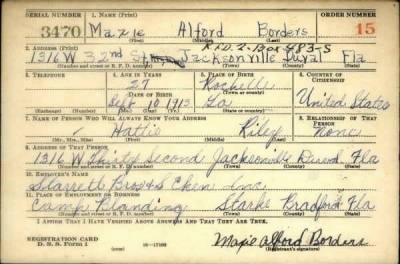 SERIAL NUMBER 1. NAME (Print) ORDER NUMBER
3470 Maxie Alford Borders 15
(First) (Middle) (Last)
2. ADDRESS (Print) R.F.D. 2-Box 483-S
1316 W 32nd St Jacksonville Duval Fla
(Number and street or R. F. D. number) (Town) (County) (State)
3. TELEPHONE 4. AGE IN YEARS 5. PLACE OF BIRTH 6. COUNTRY OF CITIZENSHIP
27 Rochelle
DATE OF BIRTH (Town or county)
Sept 10 1913 Ga United States
(Exchange) (Number) (Mo.) (Day) (Yr.) (State or country)
7. NAME OF PERSON WHO WILL ALWAYS KNOW YOUR ADDRESS 8. RELATIONSHIP OF THAT PERSON
Hattie Riley None
(Mr., Mrs., Miss) (First) (Middle) (Last)
9. ADDRESS OF THAT PERSON
1316 W Thirty Second Jacksonville Duval Fla
(Number and street or R. F. D. number) (Town) (County) (State)
10. EMPLOYER'S NAME
Starrett Bros & Eken Inc.
11. PLACE OF EMPLOYMENT OR BUSINESS
Camp Blanding Starke Bradford Fla
(Number and street or R. F. D. number) (Town) (County) (State)
I AFFIRM THAT I HAVE VERIFIED ABOVE ANSWERS AND THAT THEY ARE TRUE.
REGISTRATION CARD
D. S. S. Form 1 16-17105 Maxie Alford Borders
(Registrant's signature)